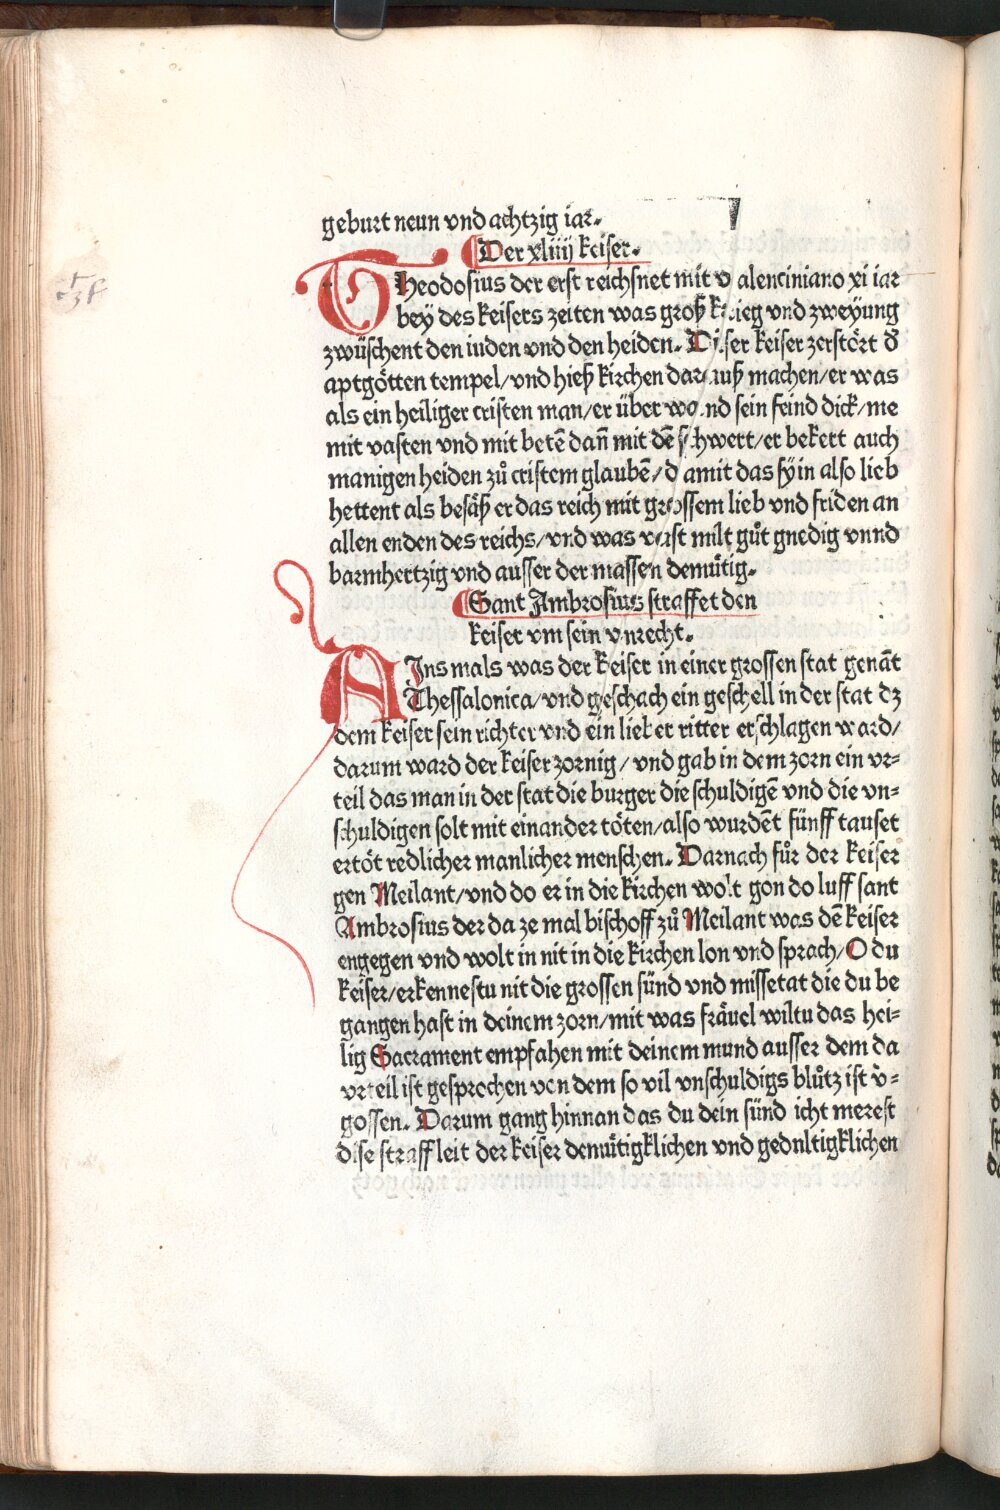 geburt neun vnd achtzig iar.
Der xliiij keiser.
Theodosius der erst reichsnet mit valenciniano xi iar
bey des keisers zeiten was groß krieg vnd zweyung
zwüschent den iuden vnd den heiden. Diser keiser zerstört d
aptgötten tempel/vnd hieß kirchen daruß machen/er was
als ein heiliger cristen man/er über wand sein feind dick/me
mit vasten vnd mit betē dañ mit dē schwert/er bekert auch
manigen heiden zů cristem glaubē/d amit das syin also lieb
hettent als besäß er das reich mit grossem lieb vnd friden an
allen enden des reichs/vnd was vast milt gůt gnedig vnnd
barmhertzig vnd ausser der massen demůtig.
Sant Ambrosius straffet den
keiser vm sein vnrecht.
AIns mals was der keiser in einer grossen stat genāt
Thessalonica/vnd geschach ein geschell in der stat dz
dem keiser sein richter vnd ein lieber ritter erschlagen ward/
darum ward der keiser zornig/vnd gab in dem zorn ein vr=
teil das man in der stat die burger die schuldigē vnd die vn=
schuldigen solt mit einander töten/also wurdēt fünff tauset
ertöt redlicher manlicher menschen. Darnach fůr der keiser
gen Meilant/vnd do er in die kirchen wolt gon do luff sant
Ambrosius der da ze mal bischoff zů Meilant was dē keiser
engegen vnd wolt in nit in die kirchen lon vnd sprach/O du
keiser/erkennestu nit die grossen sünd vnd missetat die du be
gangen hast in deinem zorn/mit was fräuel wiltu das hei=
lig Sacrament empfahen mit deinem mund ausser dem da
vrteil ist gesprochen von dem so vil vnschuldigs blůtz ist v̄=
gossen. Darum gang hinnan das du dein sünd icht merest
dise straff leit der keiser demůtigklichen vnd gedultigklichen